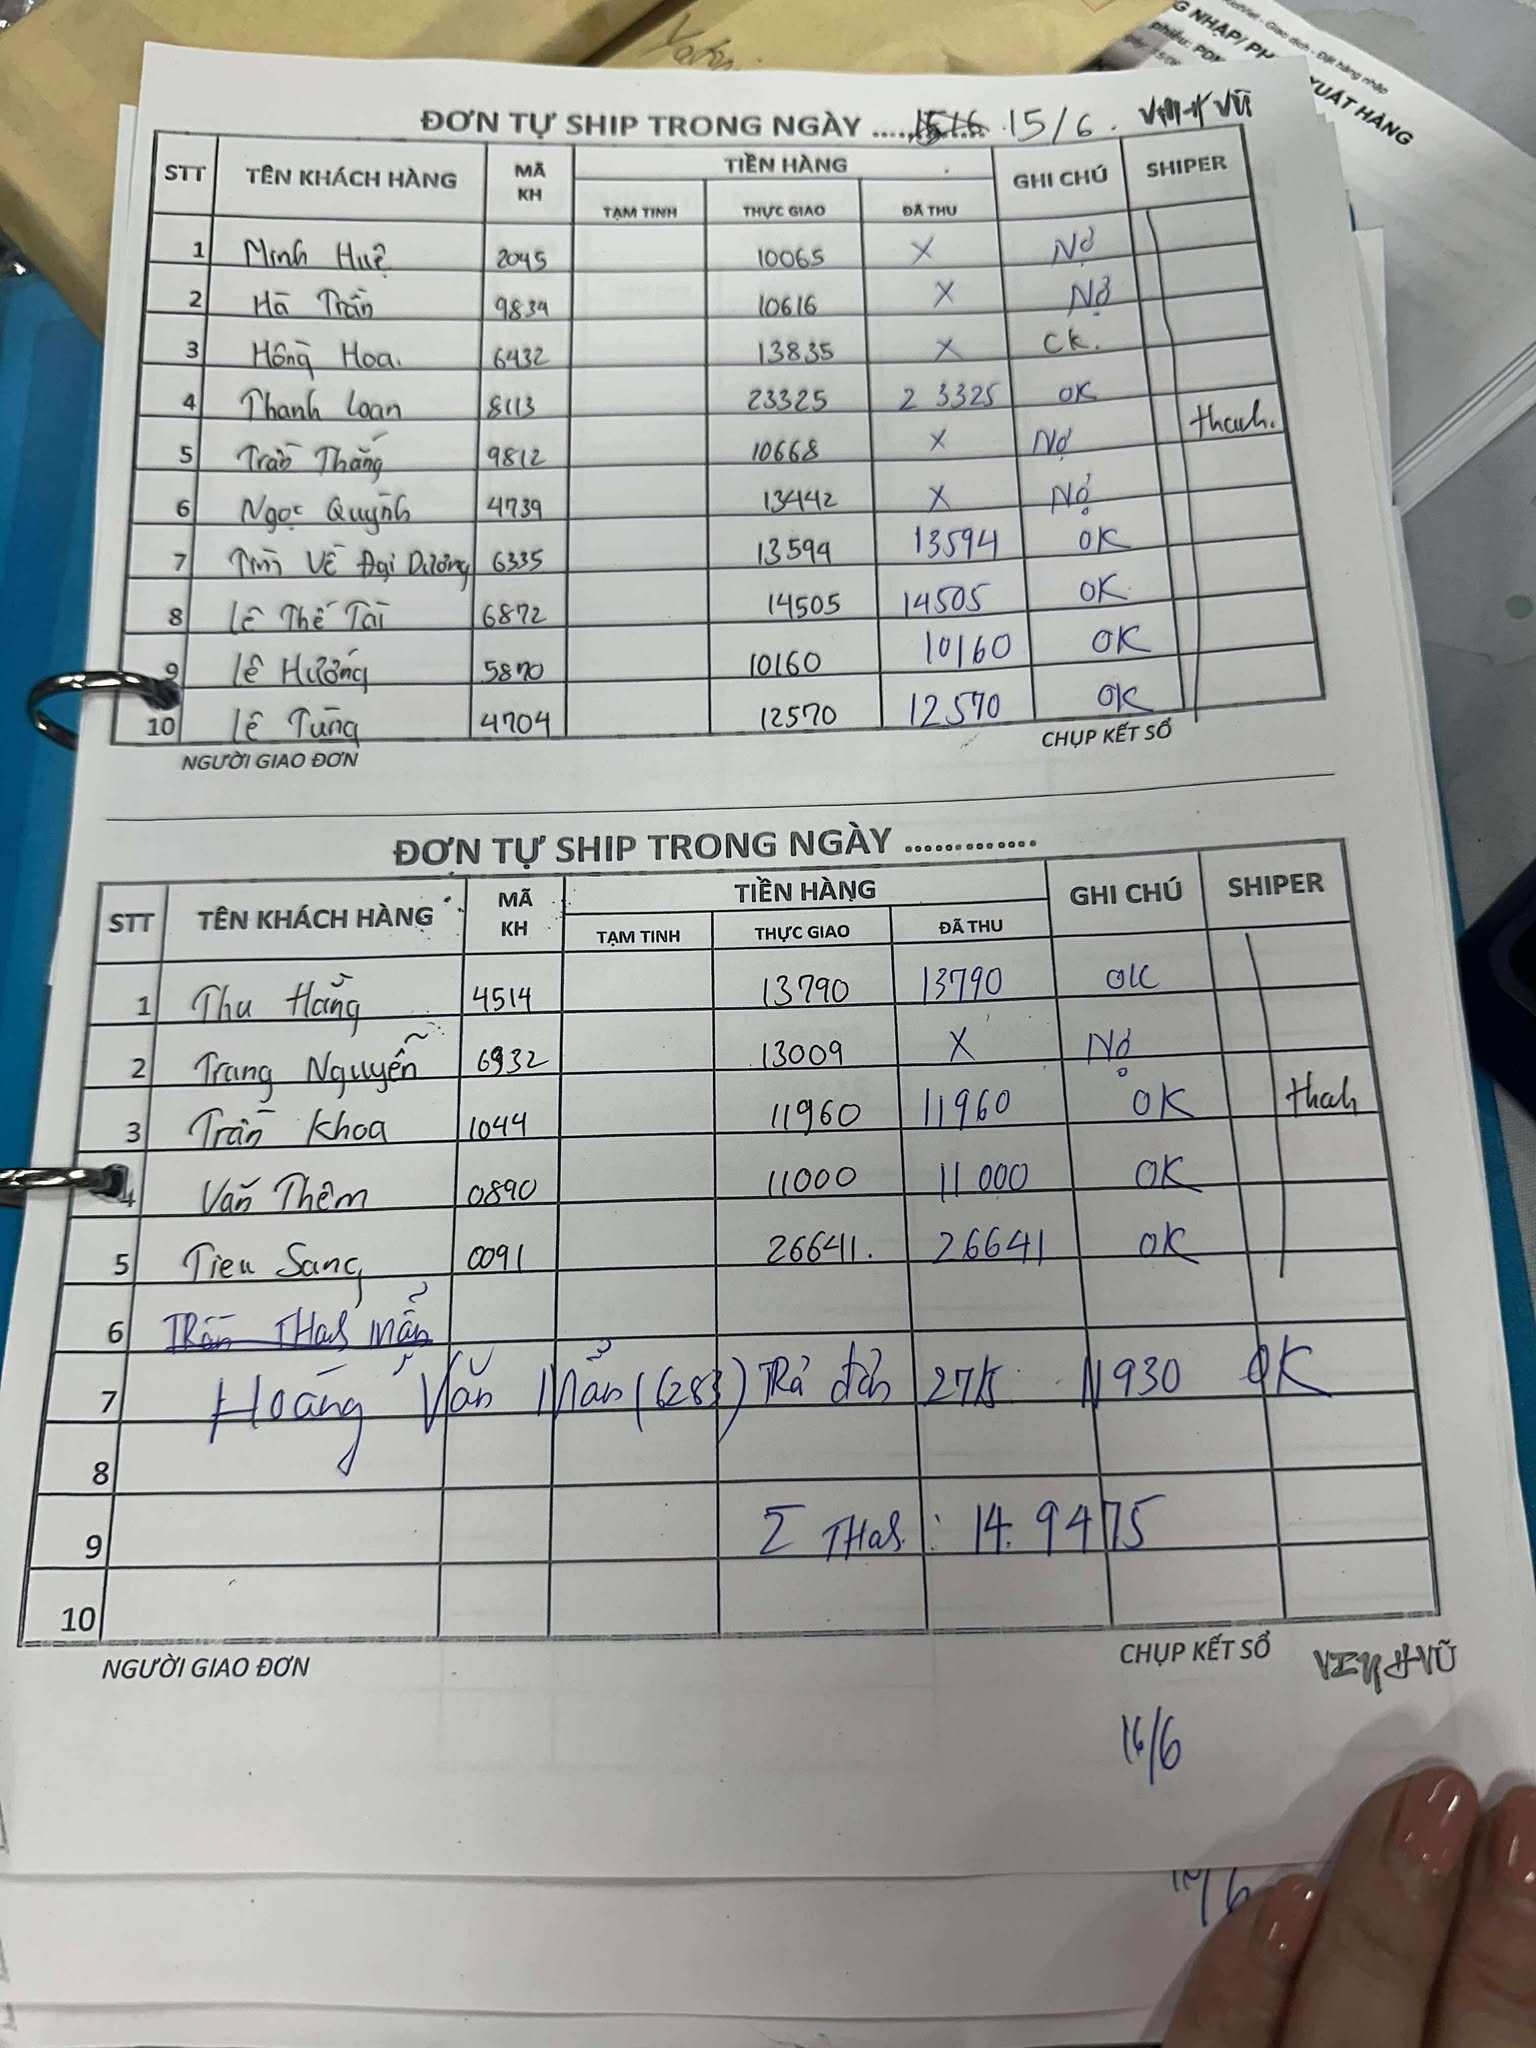 ĐƠN TỰ SHIP TRONG NGÀY ............. 15/6. VŨ
STT TÊN KHÁCH HÀNG MÃ KH TIỀN HÀNG GHI CHÚ SHIPER
TẠM TINH THỰC GIAO ĐÃ THU
1 Minh Huệ 2045 10065 X Nợ
2 Hà Trần 9839 10616 X Nợ
3 Hồng Hoa. 6432 13835 X Ck.
4 Thanh Loan 8113 23325 2 3325 OK
thanh.
5 Trần Thắng 9812 10668 X Nợ
6 Ngọc Quỳnh 4739 13442 X Nợ
7 Tìm Về Đại Dương 6335 13594 13594 OK
8 Lê Thế Tài 6872 14505 14505 OK
9 Lê Hương 5870 10160 10160 OK
10 Lê Tùng 4704 12570 12570 OK
NGƯỜI GIAO ĐƠN CHỤP KẾT SỔ
ĐƠN TỰ SHIP TRONG NGÀY .............
STT TÊN KHÁCH HÀNG MÃ KH TIỀN HÀNG GHI CHÚ SHIPER
TẠM TINH THỰC GIAO ĐÃ THU
1 Thu Hằng 4514 13790 13790 OK
2 Trang Nguyễn 6932 13009 X Nợ
3 Trần Khoa 1044 11960 11960 OK thah
4 Văn Thêm 0890 11000 11 000 OK
5 Tieu Sang 0091 26641. 26641 OK
6
7 Hoàng Văn Mẩn (6283) Trả đơn 27K 11930 OK
8
9 Σ THah : 14.9475
10
NGƯỜI GIAO ĐƠN CHỤP KẾT SỔ VŨ
16/6